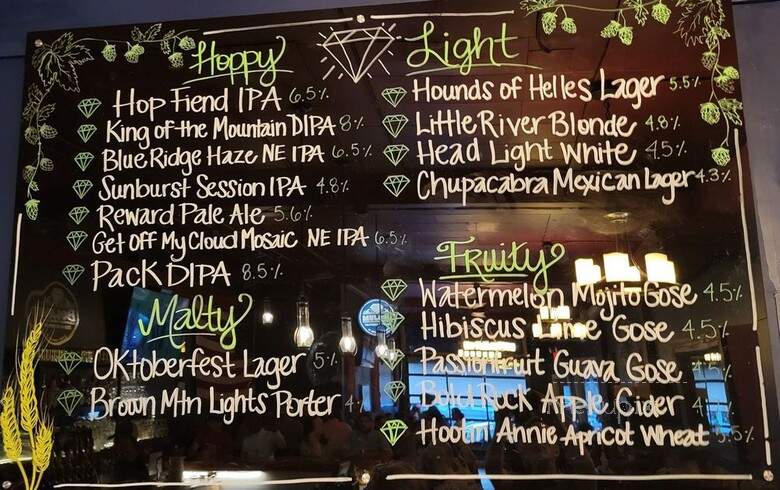 Hoppy
Hop Fiend IPA 6.5%
King of the Mountain DIPA 8%
Blue Ridge Haze NE IPA 6.5%
Sunburst Session IPA 4.8%
Reward Pale Ale 5.6%
Get Off My Cloud Mosaic NE IPA 6.5%
Pack DIPA 8.5%
Malty
Oktoberfest Lager 5%
Brown Mtn Lights Porter
Light
Hounds of Helles Lager 5.5%
Little River Blonde 4.8%
Head Light White 4.5%
Chupacabra Mexican Lager 4.3%
Fruity
Watermelon Mojito Gose 4.5%
Hibiscus Lime Gose 4.5%
Passionfruit Guava Gose 4.5%
Bold Rock Apple Cider
Hootin Annie Apricot Wheat 5.5%